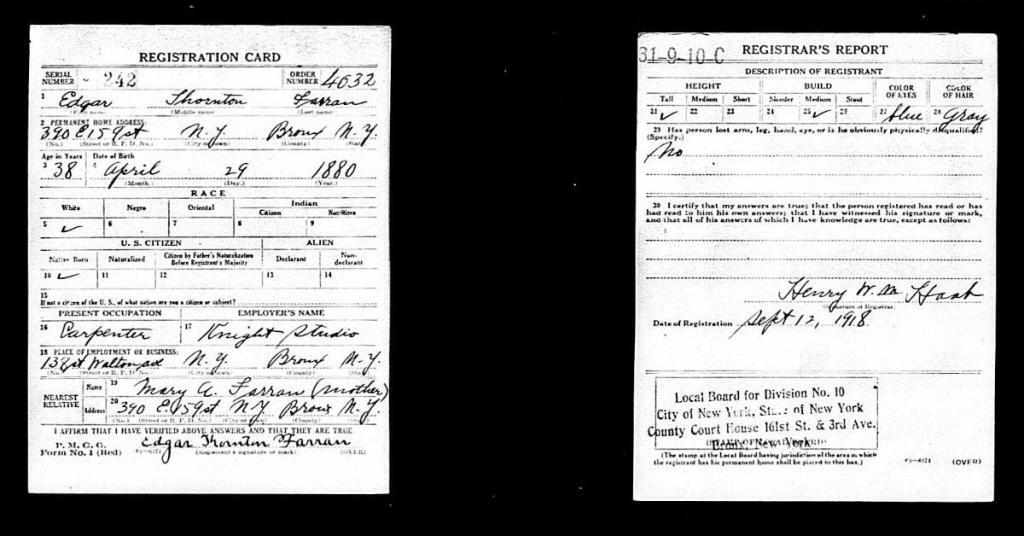 REGISTRATION CARD
SERIAL NUMBER 242 ORDER NUMBER 4032
1 Edgar Thornton Farran
(First name) (Middle name) (Last name)
2 PERMANENT HOME ADDRESS:
390 E 159 st N.Y. Bronx N.Y.
(No.) (Street or R. F. D. No.) (City or town) (County) (State)
Age in Years Date of Birth
3 38 4 April 29 1880
(Month.) (Day.) (Year.)
RACE
White Negro Oriental Indian
Citizen Noncitizen
5 ✓ 6 7 8 9
U. S. CITIZEN ALIEN
Native Born Naturalized Citizen by Father's Naturalization Before Registrant's Majority Declarant Non-declarant
10 ✓ 11 12 13 14
15
If not a citizen of the U. S., of what nation are you a citizen or subject?
PRESENT OCCUPATION EMPLOYER'S NAME
16 Carpenter 17 Knight Studio
18 PLACE OF EMPLOYMENT OR BUSINESS:
138 st Walton ave N.Y. Bronx N.Y.
(No.) (Street or R. F. D. No.) (City or town) (County) (State)
NEAREST RELATIVE
Name 19 Mary A. Farran (mother)
Address 20 390 E. 159 st NY Bronx N.Y.
(No.) (Street or R. F. D. No.) (City or town) (County) (State)
I AFFIRM THAT I HAVE VERIFIED ABOVE ANSWERS AND THAT THEY ARE TRUE
P. M. G. O.
Form No. 1 (Red) Edgar Thornton Farran
(Registrant's signature or mark) (OVER)
31-9-10-C REGISTRAR'S REPORT
DESCRIPTION OF REGISTRANT
HEIGHT BUILD COLOR OF EYES COLOR OF HAIR
Tall Medium Short Slender Medium Stout
21 ✓ 22 23 24 25 ✓ 26 27 blue 28 Gray
29 Has person lost arm, leg, hand, eye, or is he obviously physically disqualified?
(Specify.)
No
30 I certify that my answers are true; that the person registered has read or has had read to him his own answers; that I have witnessed his signature or mark, and that all of his answers of which I have knowledge are true, except as follows:
Henry W. M. Haab
(Signature of Registrar)
Date of Registration Sept 12, 1918
Local Board for Division No. 10
City of New York, State of New York
County Court House 161st St. & 3rd Ave.
Bronx, New York
(STAMP OF LOCAL BOARD)
(The stamp of the Local Board having jurisdiction of the area in which the registrant has his permanent home shall be placed in this box.)
03-6171 (OVER)